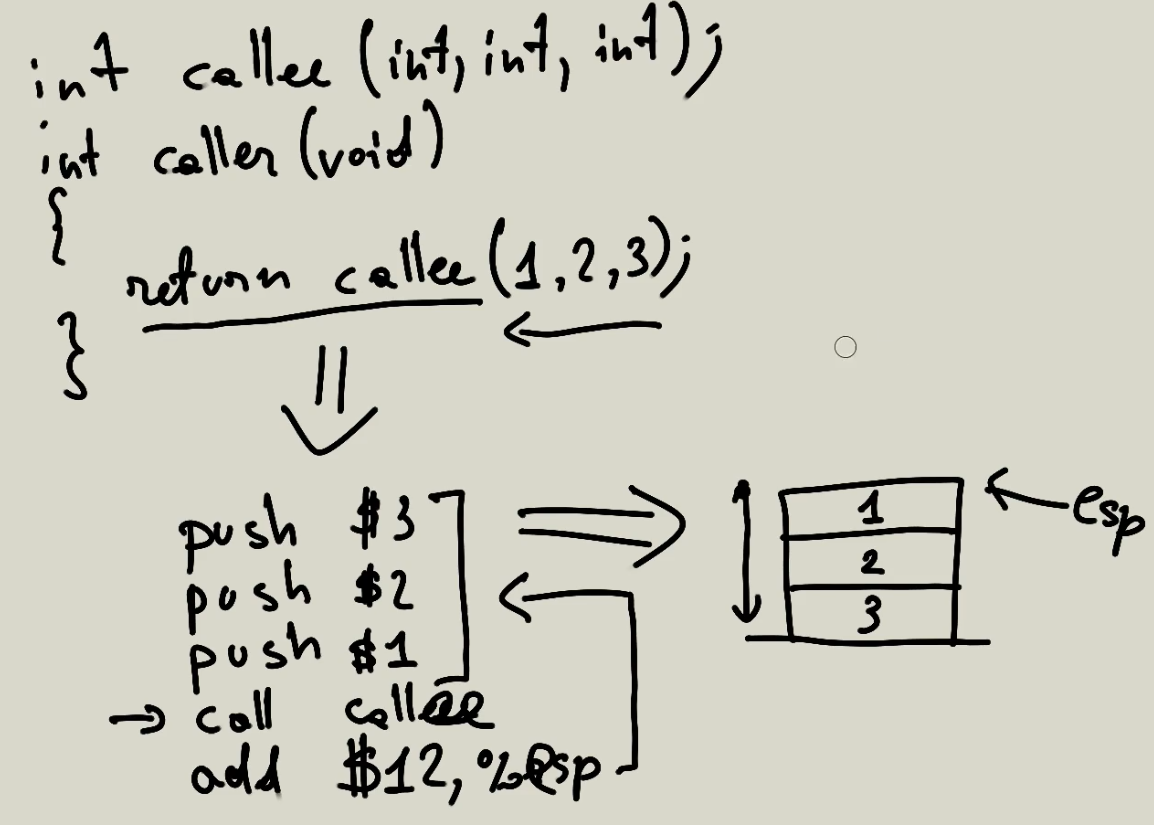 int callee (int, int, int);
int caller (void)
{
return callee (1, 2, 3);
}
push $3
push $2
push $1
call callee
add $12, %esp
1
2
3
esp